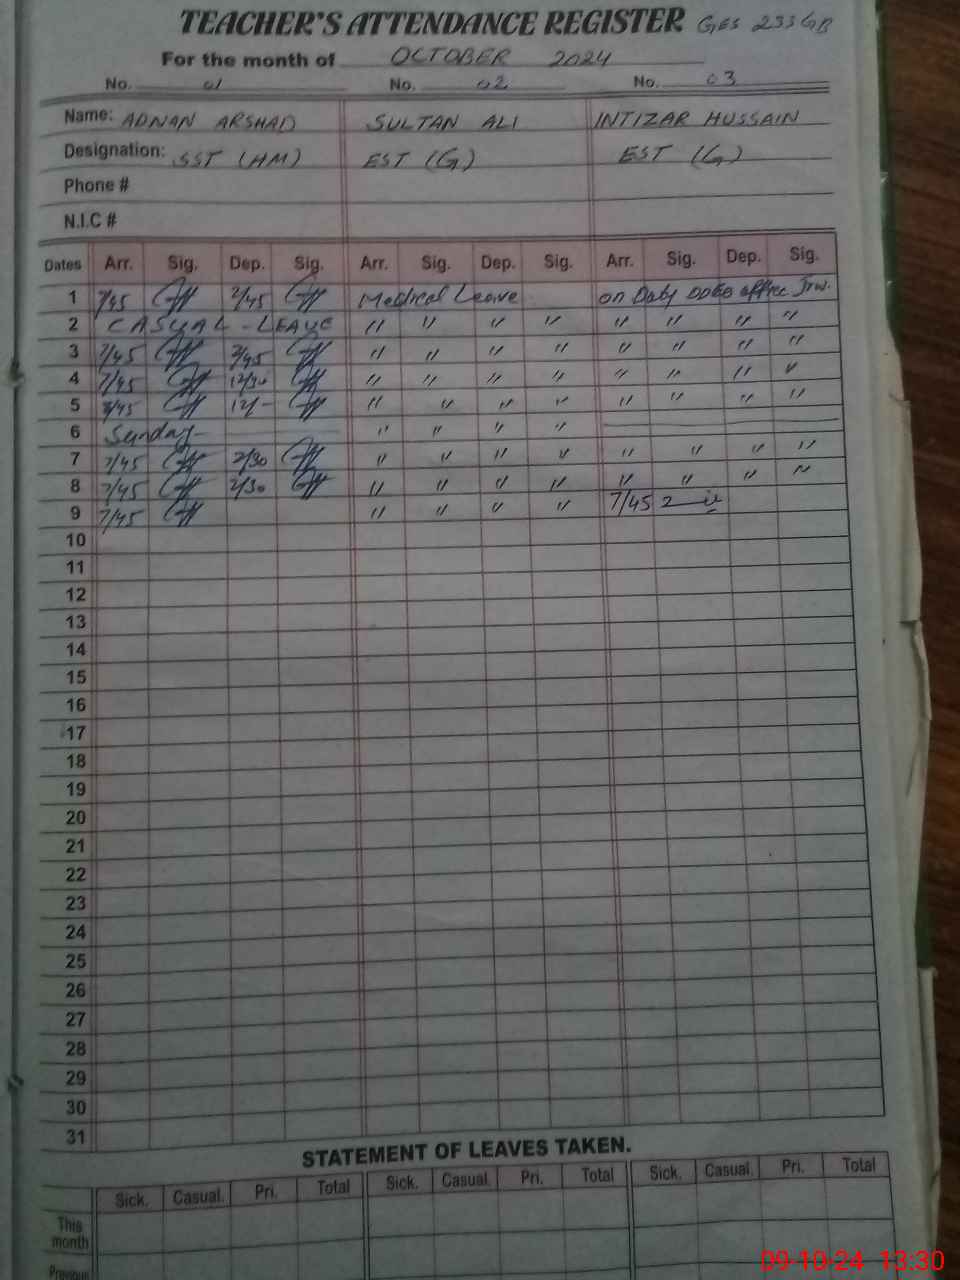 TEACHER'S ATTENDANCE REGISTER GES 233 GB
For the month of OCTOBER 2024
No. 01 No. 02 No. 03
Name: ADNAN ARSHAD SULTAN ALI INTIZAR HUSSAIN
Designation: SST (HM) EST (G) EST (G)
Phone #
N.I.C #
Dates Arr. Sig. Dep. Sig. Arr. Sig. Dep. Sig. Arr. Sig. Dep. Sig.
1 7/45 2/45 Medical Leave on Duty DDEO office Jrw.
2 CASUAL - LEAVE " " " " " " " "
3 7/45 2/45 " " " " " " " "
4 7/45 12/30 " " " " " " " "
5 7/45 12/- " " " " " " " "
6 Sunday " " " "
7 7/45 2/30 " " " " " " " "
8 7/45 2/30 " " " " " " " "
9 7/45 " " " " 7/45
10
11
12
13
14
15
16
17
18
19
20
21
22
23
24
25
26
27
28
29
30
31
STATEMENT OF LEAVES TAKEN.
Sick. Casual. Pri. Total Sick. Casual. Pri. Total Sick. Casual. Pri. Total
This
month
Previous
09-10-24 13:30